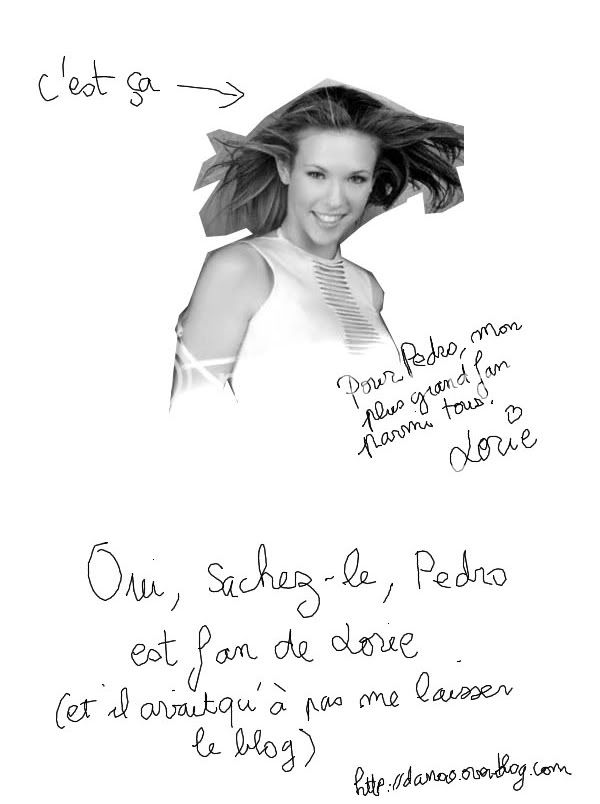 c'est ça
Pour Pedro, mon
plus grand fan
parmi tous.
Lorie
Oui, sachez-le, Pedro
est fan de Lorie
(et il avait qu'à pas me laisser
le blog)